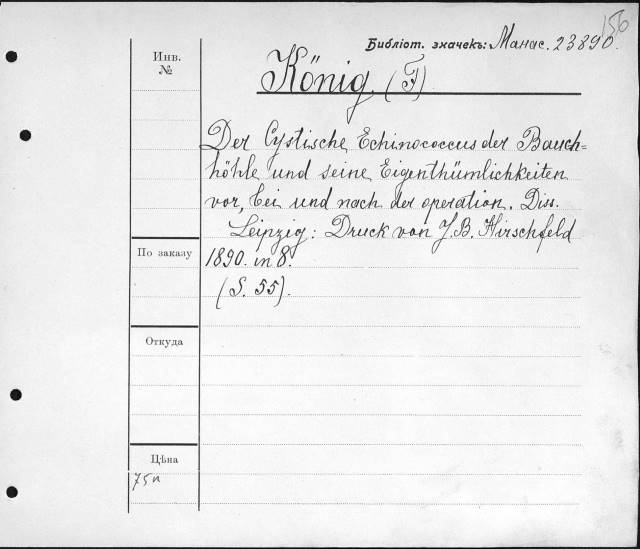 156
Библіот. значекъ: Манас. 23890.
Инв.
№
König. (F)
Der Cystische Echinococcus der Bauch=
höhle und seine Eigenthümlichkeiten
vor, bei und nach der operation. Diss.
Leipzig: Druck von J. B. Hirschfeld
По заказу
1890. in 8.
(S. 55).
Откуда
Цѣна
75